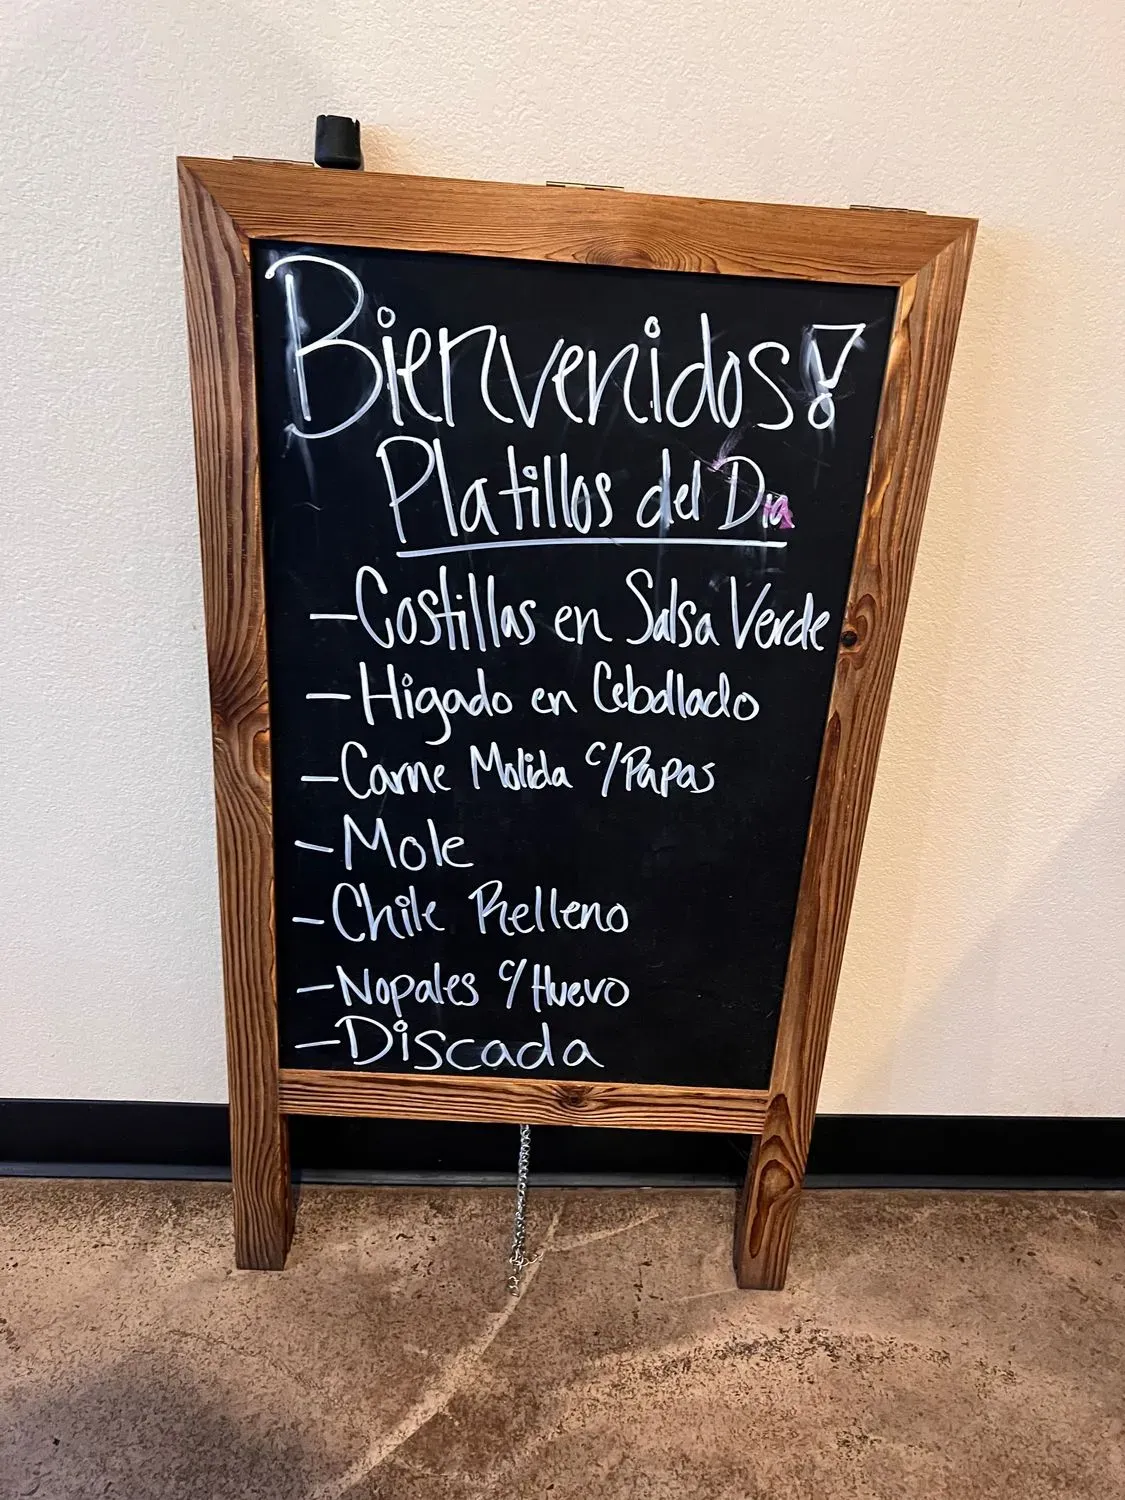 Bienvenidos!
Platillos del Dia
- Costillas en Salsa Verde
- Higado en Cebollado
- Carne Molida c/Papas
- Mole
- Chile Relleno
- Nopales c/Huevo
- Discada